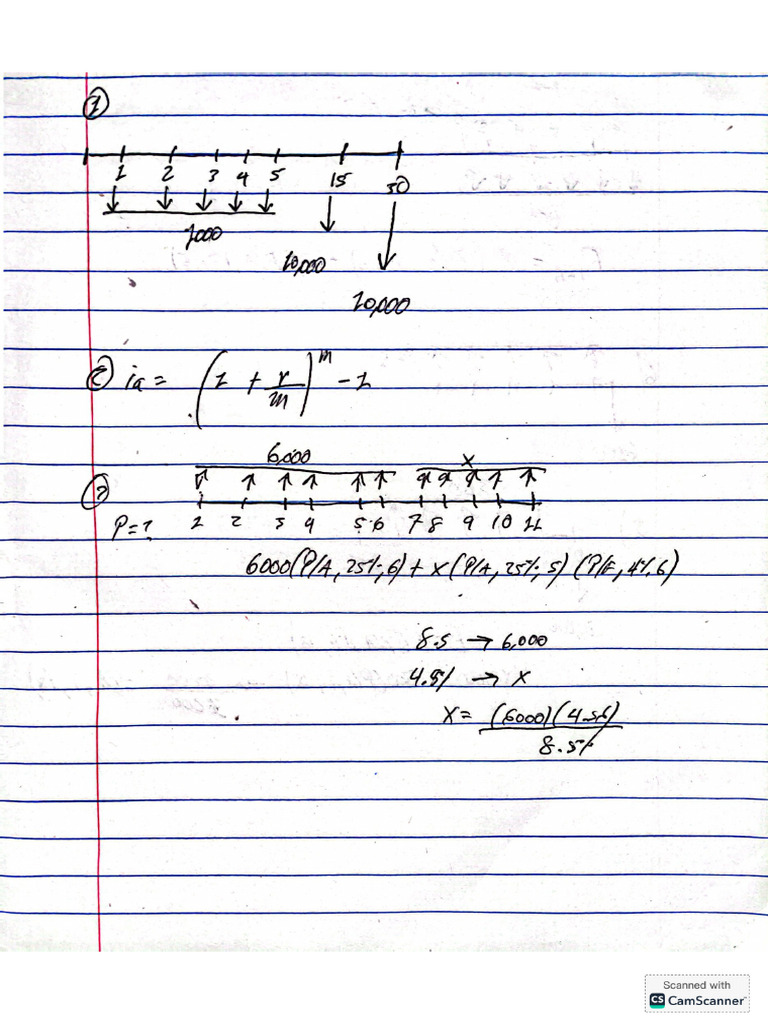 ①
1 2 3 4 5 15 30
1000
10,000
20,000
② ia = (1 + r/m)^m - 1
③ 6,000 X
P=? 1 2 3 4 5 6 7 8 9 10 11
6000(P/A, 25%, 6) + X (P/A, 25%, 5) (P/F, 4%, 6)
8.5 → 6,000
→ X
X = (6000)(
8.5%
Scanned with
CS CamScanner